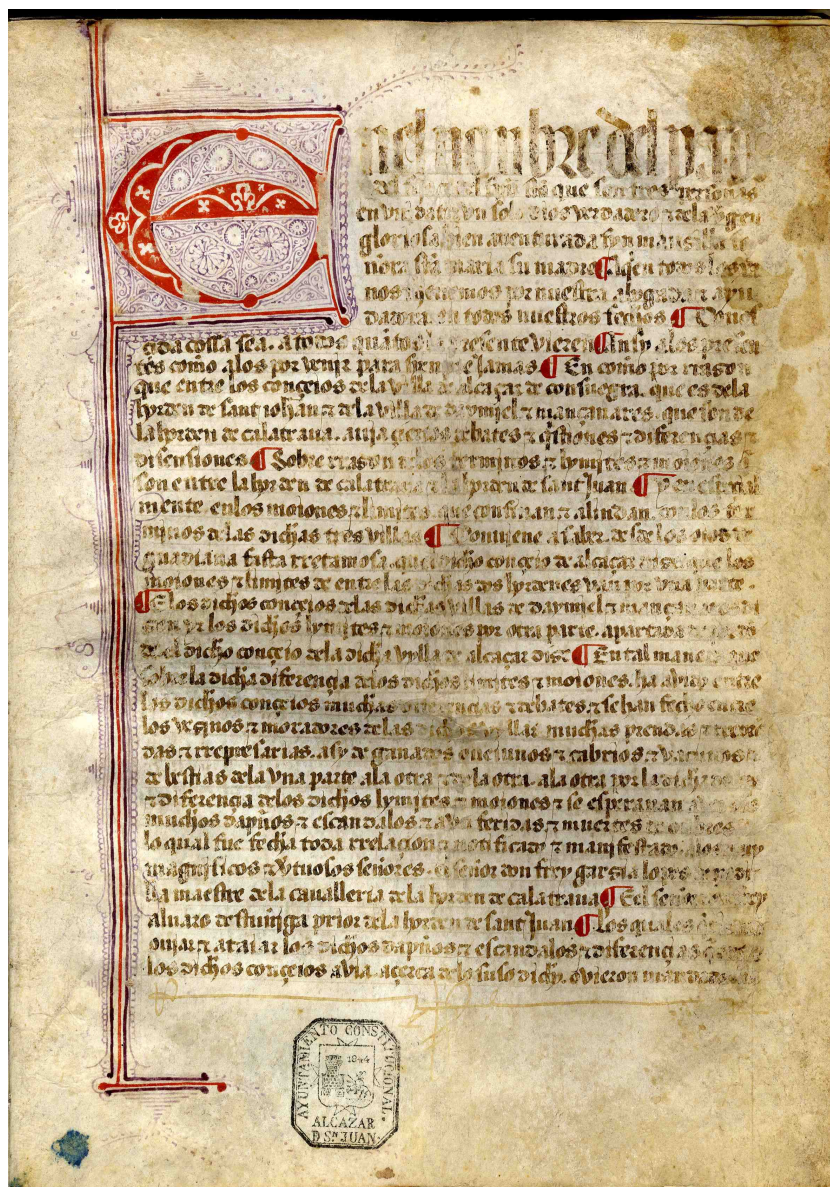 En el nonbre del padre
del fijo τ del spu sco que son tres personas
en vna τ vn solo dios verdadero τ dela vgen
gloriosa bien auenturada syn mansilla
nr̃a scã maria su madre ¶ Aqen todos los
nos tenemos por nuestra abogada τ ayu
dadora en todos nuestros fechos ¶ Conos
çida cossa sea. a todos quãtos presente vieren ¶ Ansy alos presen
tes como alos por venir para sienpre Jamas ¶ En como por rrason
que entre los conçeios dela villa de alcaçar de consuegra. que es dela
hɔrden de sant iohan τ dela villa de daymiel τ mançanares. que son de
la horden de calatraua. auia debates τ qistiones τ diferençias τ
disensiones ¶ Sobre rrason delos terminos τ lymites τ moiones q̃
son entre la horden de calatraua τ la horden de sant Juan ¶ y en espeçial
mente. enlos moiones τ limites. que confinan τ alindan. con los ter
minos delas dichas tres villas ¶ Conuiene a saber. desde los oios de
guadiana fasta rretamosa. quel dicho conçeio de alcaçar dise que los
moiones τ limites de entre las dichas dos hordenes van por vna parte.
¶ E los dichos conçeios delas dichas villas de daymiel τ mançanares di
çen yr los dichos lymites τ moiones por otra parte. apartada
de el dicho conçeio dela dicha vylla de alcaçar dise ¶ En tal manera que
sobre la dicha diferençia delos dichos limites τ moiones. ha avido entre
los dichos conçeios muchas diferençias τ debates. τ se han fecho entre
los vesinos τ moradores delas dichas villas muchas prendas τ
das τ rrepresarias. asy de ganados ouejunos τ cabrios. τ vacunos
de bestias dela vna parte ala otra τ dela otra. ala otra por la dicha
τ diferençia delos dichos lymites τ moiones τ se esperauan
muchos dapños τ escandalos τ avn feridas τ muertes de onbres
lo qual fue fecha toda rrelaçion τ notificado τ manifestado
magnificos τ vtuosos señores. el señor don frey garçia lopes de padi
lla maestre dela cauallería dela horden de calatraua ¶ E el señor don frey
aluaro destuñiga prior dela horden de sant Juan ¶ Los quales
τ ataiar los dichos dapños τ escandalos τ diferençias
los dichos conçeios avia. açerca delo suso dicho. ovieron
AYUNTAMIENTO CONSTITUCIONAL.
1844
ALCAZAR
D Sⁿ. JUAN.